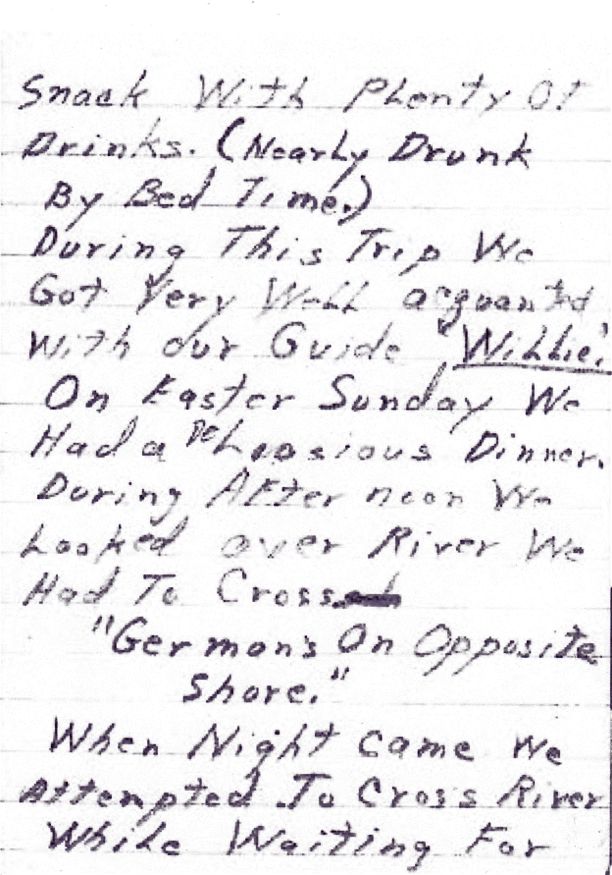 Snack With Plenty Of
Drinks. (Nearly Drunk
By Bed Time.)
During This Trip We
Got Very Well acquanted
With our Guide "Willie."
On Easter Sunday We
Had a Dinner.
During After noon We
Looked over River We
Had To Cross
"Germans On Opposite
Shore."
When Night Came We
Attempted To Cross River
While Waiting For